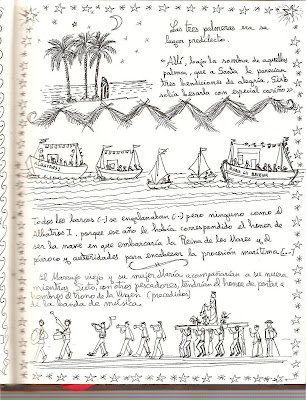 Las tres palmeras era su
lugar predilecto.
«Allí, bajo la sombra de aquellas
palmas, que a Santa le parecían
tres bendiciones de alegría, Sito
solía besarla con especial cariño».
Todos los barcos (..) se engalanaban (..) pero ninguno como el
Albatros I, porque ese año le había correspondido el honor de
ser la nave en que embarcaría la Reina de los Mares y el
párroco y autoridades para encabezar la procesión marítima (..)
El Marejo viejo y su mujer María acompañarían a su nuera
mientras Sito, con otros pescadores, tendrían el honor de portar a
hombros el Trono de la Virgen (precedidos)
de la banda de música.